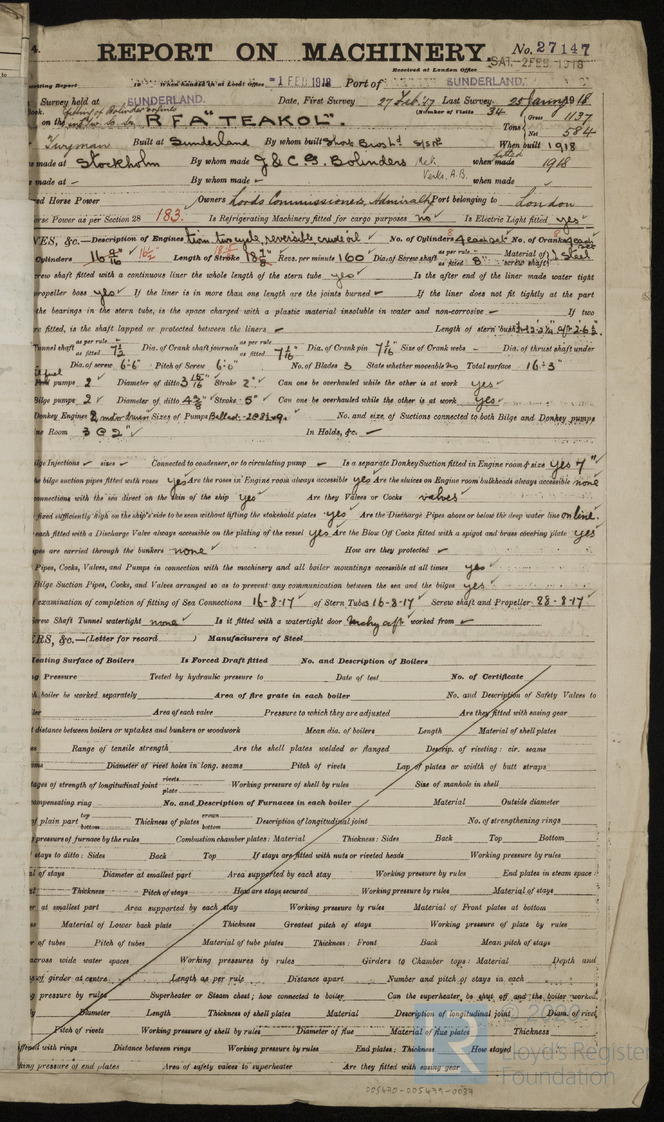 4.
REPORT ON MACHINERY. No. 27147
Received at London Office SAT. 2 FEB 1918
Writing Report 19 When handed in at Local Office -1 FEB 1918 Port of SUNDERLAND.
Survey held at SUNDERLAND. Date, First Survey 27 Feb '17 Last Survey 25 Jany 1918
(Number of Visits 34)
on the R F A "TEAKOL". Tons Gross 1137 Net 584
Built at Sunderland By whom built Short Bros Ld When built 1918
made at Stockholm By whom made J & C. G. Bolinders when fitted 1918
made at - By whom made - when made
Horse Power Owners Lords Commissioners, Admiralty Port belonging to London
Horse Power as per Section 28 183. Is Refrigerating Machinery fitted for cargo purposes no Is Electric Light fitted yes
ES, &c.—Description of Engines twin, two cycle, reversible, crude oil No. of Cylinders 4 each set No. of Cranks 4 each
Cylinders 16 9/16 Length of Stroke 18 7/8 Revs. per minute 160 Dia. of Screw shaft as per rule - as fitted 8" Material of screw shaft Steel
screw shaft fitted with a continuous liner the whole length of the stern tube yes Is the after end of the liner made water tight
propeller boss yes If the liner is in more than one length are the joints burned - If the liner does not fit tightly at the part
the bearings in the stern tube, is the space charged with a plastic material insoluble in water and non-corrosive - If two
are fitted, is the shaft lapped or protected between the liners - Length of stern bush
Tunnel shaft as per rule as fitted 7 1/2 Dia. of Crank shaft journals as per rule as fitted 7 7/16 Dia. of Crank pin 7 7/16 Size of Crank webs - Dia. of thrust shaft under
Dia. of screw 6'-6" Pitch of Screw 6'-0" No. of Blades 3 State whether moveable no Total surface 16.3
pumps 2 Diameter of ditto 3 15/16 Stroke 2" Can one be overhauled while the other is at work yes
Bilge pumps 2 Diameter of ditto 4 3/8 Stroke 5" Can one be overhauled while the other is at work yes
Donkey Engines 2 motor driven Sizes of Pumps Ballast - 2 @ 8½ x 9. No. and size of Suctions connected to both Bilge and Donkey pumps
ne Room 3 @ 2" In Holds, &c. -
Bilge Injections - sizes - Connected to condenser, or to circulating pump - Is a separate Donkey Suction fitted in Engine room & size yes 4"
the bilge suction pipes fitted with roses yes Are the roses in Engine room always accessible yes Are the sluices on Engine room bulkheads always accessible none
connections with the sea direct on the skin of the ship yes Are they Valves or Cocks valves
fixed sufficiently high on the ship's side to be seen without lifting the stokehold plates yes Are the Discharge Pipes above or below the deep water line on line.
each fitted with a Discharge Valve always accessible on the plating of the vessel yes Are the Blow Off Cocks fitted with a spigot and brass covering plate yes
pes are carried through the bunkers none How are they protected -
Pipes, Cocks, Valves, and Pumps in connection with the machinery and all boiler mountings accessible at all times yes
Bilge Suction Pipes, Cocks, and Valves arranged so as to prevent any communication between the sea and the bilges yes
of examination of completion of fitting of Sea Connections 16-8-17 of Stern Tube 16-8-17 Screw shaft and Propeller 28-8-17
Screw Shaft Tunnel watertight none Is it fitted with a watertight door Mchy aft worked from -
ERS, &c.—(Letter for record ) Manufacturers of Steel
Heating Surface of Boilers Is Forced Draft fitted No. and Description of Boilers
g Pressure Tested by hydraulic pressure to Date of test No. of Certificate
h boiler be worked separately Area of fire grate in each boiler No. and Description of Safety Valves to
ler Area of each valve Pressure to which they are adjusted Are they fitted with easing gear
t distance between boilers or uptakes and bunkers or woodwork Mean dia. of boilers Length Material of shell plates
ss Range of tensile strength Are the shell plates welded or flanged Descrip. of riveting: cir. seams
ams Diameter of rivet holes in long. seams Pitch of rivets Lap of plates or width of butt straps
tages of strength of longitudinal joint rivets plate Working pressure of shell by rules Size of manhole in shell
ompensating ring No. and Description of Furnaces in each boiler Material Outside diameter
of plain part top bottom Thickness of plates crown bottom Description of longitudinal joint No. of strengthening rings
pressure of furnace by the rules Combustion chamber plates: Material Thickness: Sides Back Top Bottom
stays to ditto: Sides Back Top If stays are fitted with nuts or riveted heads Working pressure by rules
al of stays Diameter at smallest part Area supported by each stay Working pressure by rules End plates in steam space:
Thickness Pitch of stays How are stays secured Working pressure by rules Material of stays
er at smallest part Area supported by each stay Working pressure by rules Material of Front plates at bottom
Material of Lower back plate Thickness Greatest pitch of stays Working pressure of plate by rules
er of tubes Pitch of tubes Material of tube plates Thickness: Front Back Mean pitch of stays
across wide water spaces Working pressures by rules Girders to Chamber tops: Material Depth and
ss of girder at centre Length as per rule Distance apart Number and pitch of stays in each
g pressure by rules Superheater or Steam chest; how connected to boiler Can the superheater be shut off and the boiler worked
ly Diameter Length Thickness of shell plates Material Description of longitudinal joint Diam. of rivet
Pitch of rivets Working pressure of shell by rules Diameter of flue Material of flue plates Thickness
ffened with rings Distance between rings Working pressure by rules End plates: Thickness How stayed
king pressure of end plates Area of safety valves to superheater Are they fitted with easing gear
© 2020
Lloyd's Register
Foundation
005470-005479-0037